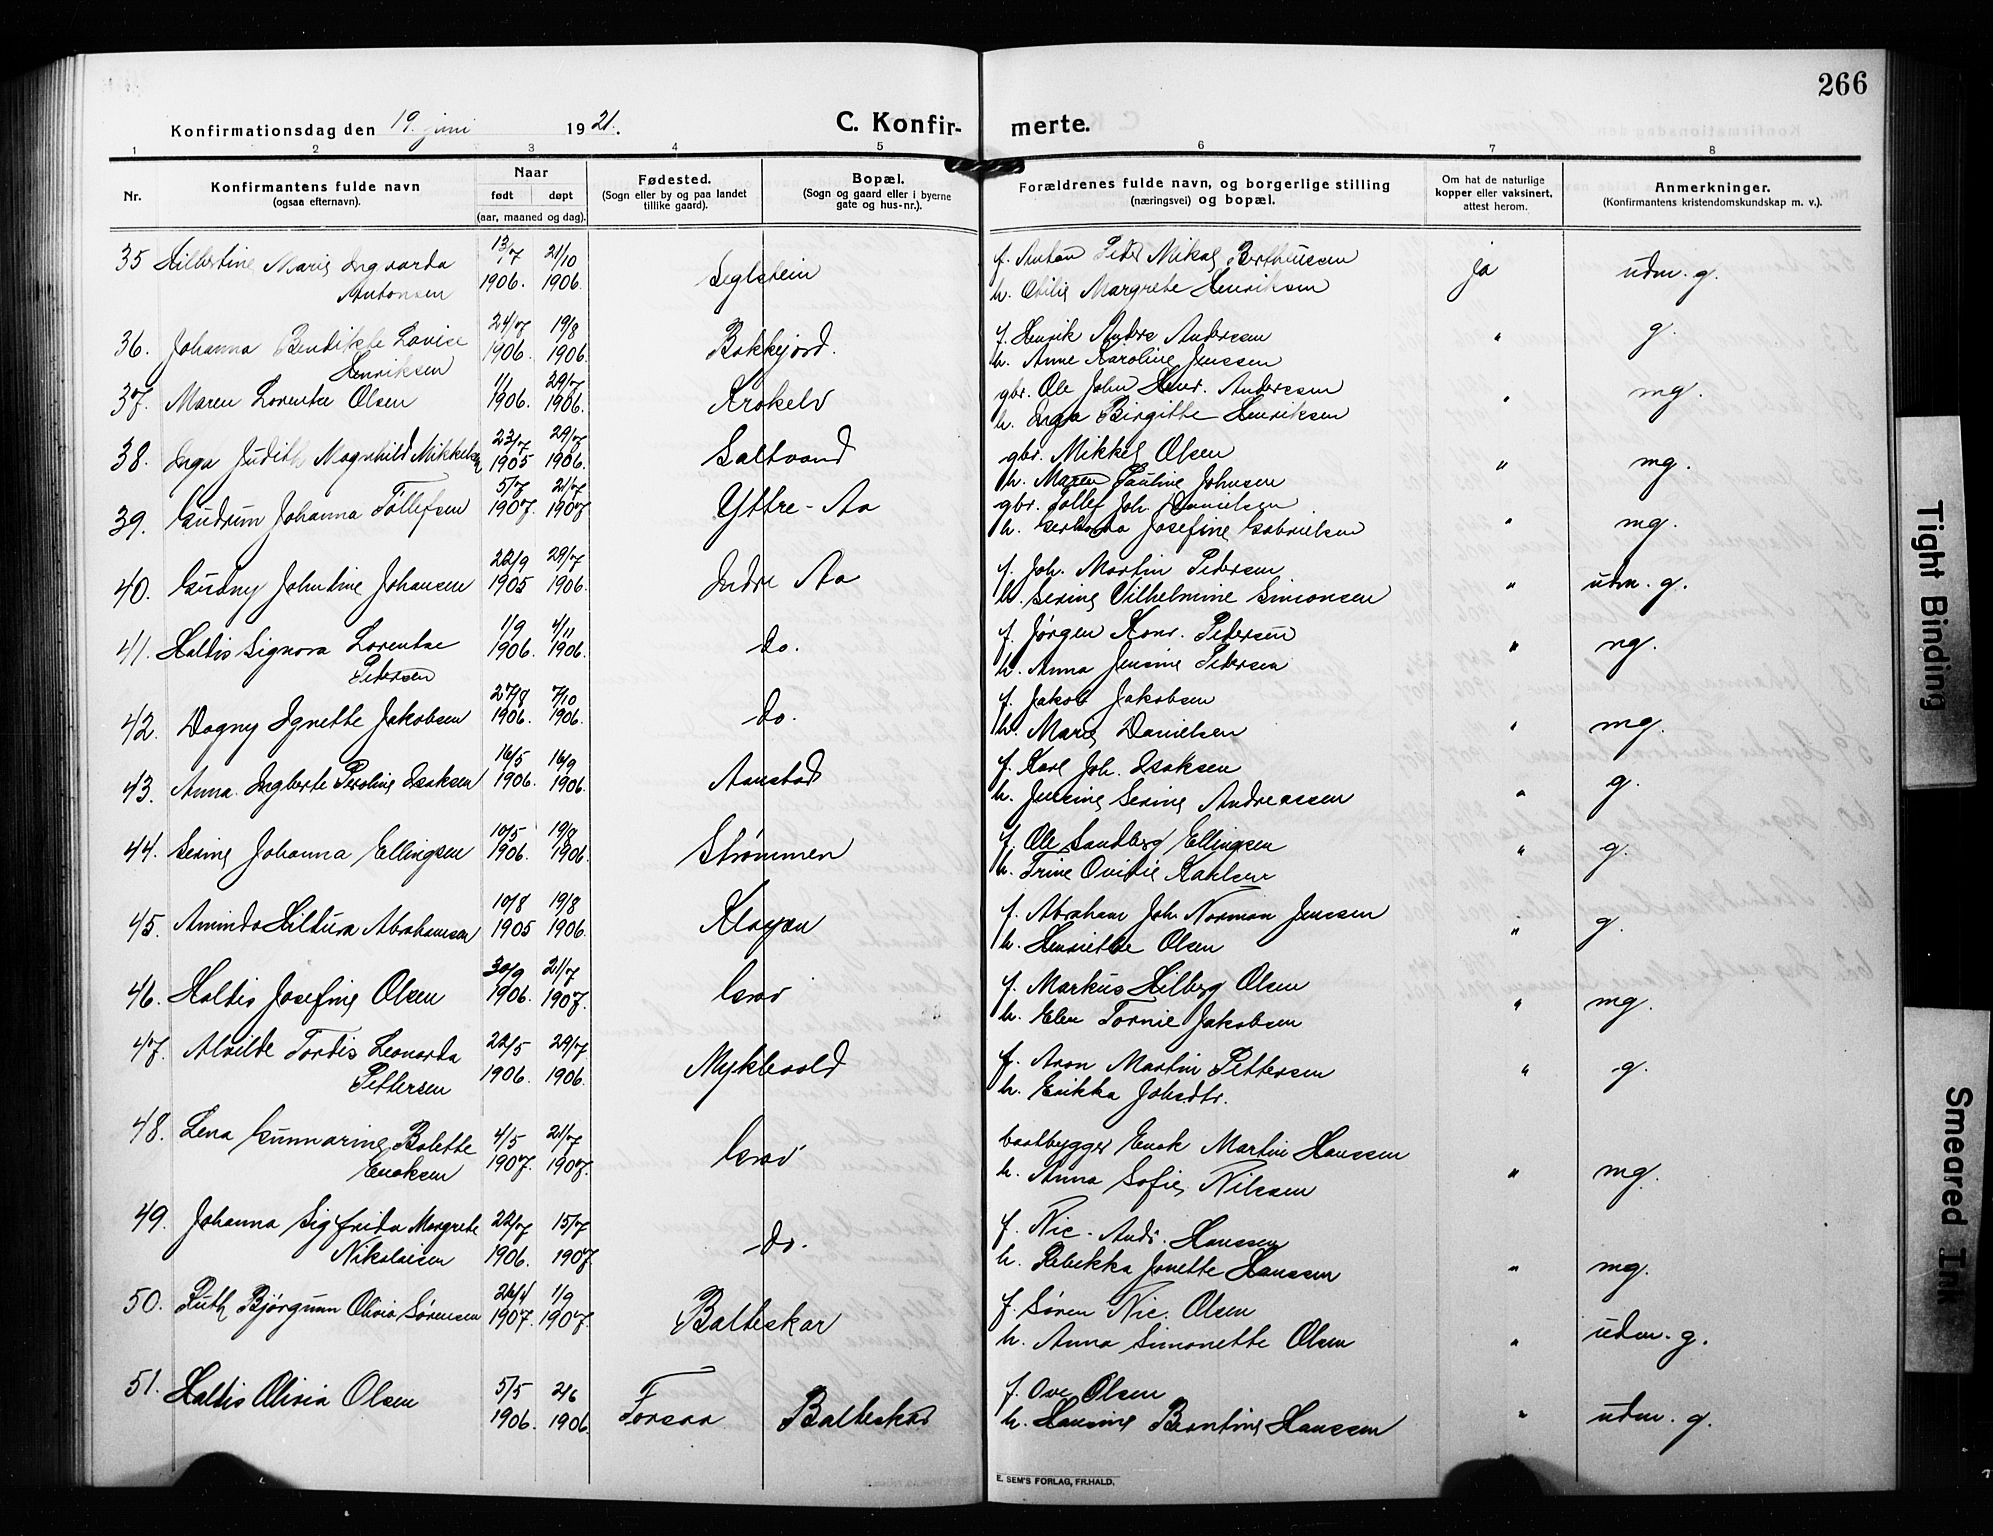 266
Konfirmationsdag den 19. juni 1921.
C. Konfirmerte.
1 2 3 4 5 6 7 8
Nr.
Konfirmantens fulde navn
(ogsaa efternavn).
Naar
født døpt
(aar, maaned og dag).
Fødested.
(Sogn eller by og paa landet
tillike gaard).
Bopæl.
(Sogn og gaard eller i byerne
gate og hus-nr.).
Forældrenes fulde navn, og borgerlige stilling
(næringsvei) og bopæl.
Om hat de naturlige
kopper eller vaksinert,
attest herom.
Anmerkninger.
(Konfirmantens kristendomskundskap m. v.).
35 Hilbertine Marie Ingvarda 13/7 21/10 f. Anton Peder Mikal Bertheussen
Antonsen 1906. 1906. Seglstein h. Otilie Margrete Henriksen ja udm. g.
36. Johanna Bendikte Lovise 24/7 19/8 f. Henrik Anders Andersen
Henriksen 1906. 1906. Bakkejord. h. Anne Karoline Jenssen " g.
37. Maren Lorentse Olsen 1/1 29/7 gbr. Ole John Henr. Anderssen
1906. 1906. Krokelv h. Inga Birgitte Henriksen " mg.
38. Inga Judith Magnhild Mikkelsen 23/7 29/7 gbr. Mikkel Olsen
1905 1906. Saltvand h. Maren Pauline Johnsen " mg.
39. Gudrun Johanna Tollefsen 5/7 21/7 gbr. Tollef Joh. Danielsen
1907. 1907. Yttre-Aa h. Josefine Gabrielsen " mg.
40. Gudny Johndine Johansen 22/9 29/7 f. Joh. Martin Pedersen
1905 1906. Indre Aa h. Serine Vilhelmine Simonsen " udm. g.
41. Haldis Signora Lorentse 1/9 4/11 f. Jørgen Konr. Pedersen
Pedersen 1906. 1906. do. h. Anna Jensine Pedersen " ng.
42. Dagny Agnette Jakobsen 27/8 7/10 f. Jakob Jakobsen
1906. 1906. do. h. Marie Danielsen " mg.
43. Anna Ingberte Peroline Isaksen 16/5 16/9 f. Karl Joh. Isaksen
1906. 1906. Aanstad h. Jensine Serine Andreassen " g.
44. Serine Johanna Ellingsen 10/5 19/8 f. Ole Sandberg Ellingsen
1906. 1906. Strømmen h. Trine Ovidie Karlsen " g.
45. Aminda Hildura Abrahamsen 10/8 19/8 f. Abraham Joh. Norman Jenssen
1905 1906. Kløven h. Henriette Olsen " g.
46. Haldis Josefine Olsen 30/9 21/7 f. Markus Hilberg Olsen
1906. 1907. Grav h. Elen Tornie Jakobsen " mg.
47. Alvilde Tordis Leonarda 22/5 29/7 f. Aron Martin Pettersen
Pettersen 1906. 1906. Myklevold h. Erikka Johsdtr. " g.
48. Lena Gunnarine Bolette 4/5 21/7 baatbygger Enok Martin Hanssen
Enoksen 1907. 1907. Grav h. Anna Sofie Nilssen " mg.
49. Johanna Sigfrida Margrete 22/7 15/7 f. Nic. Andr. Hanssen
Nikolaisen 1906. 1907. do. h. Rebekka Jonette Hanssen " mg.
50. Ruth Bjørgunn Olivia Sørensen 26/4 1/9 f. Søren Nic. Olsen
1907. 1907. Balteskar h. Anna Simonette Olsen " udm. g.
51. Haldis Olivia Olsen 5/5 2/6 f. Ove Olsen
1906. 1906. Forsaa Balteskar h. Hansine Berntine Hanssen " udm. g.
E. SEM'S FORLAG, FR.HALD.
Tight Binding
Smeared Ink